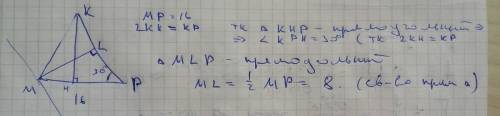 K
L
30°
M
H
P
16
MP = 16
2KH = KP
тк △ KHP – прямоугольный ⇒
⇒ ∠ KPH = 30° (тк 2KH = KP
△ MLP – прямоугольный
ML = 1/2 MP = 8. (св-во прям △)